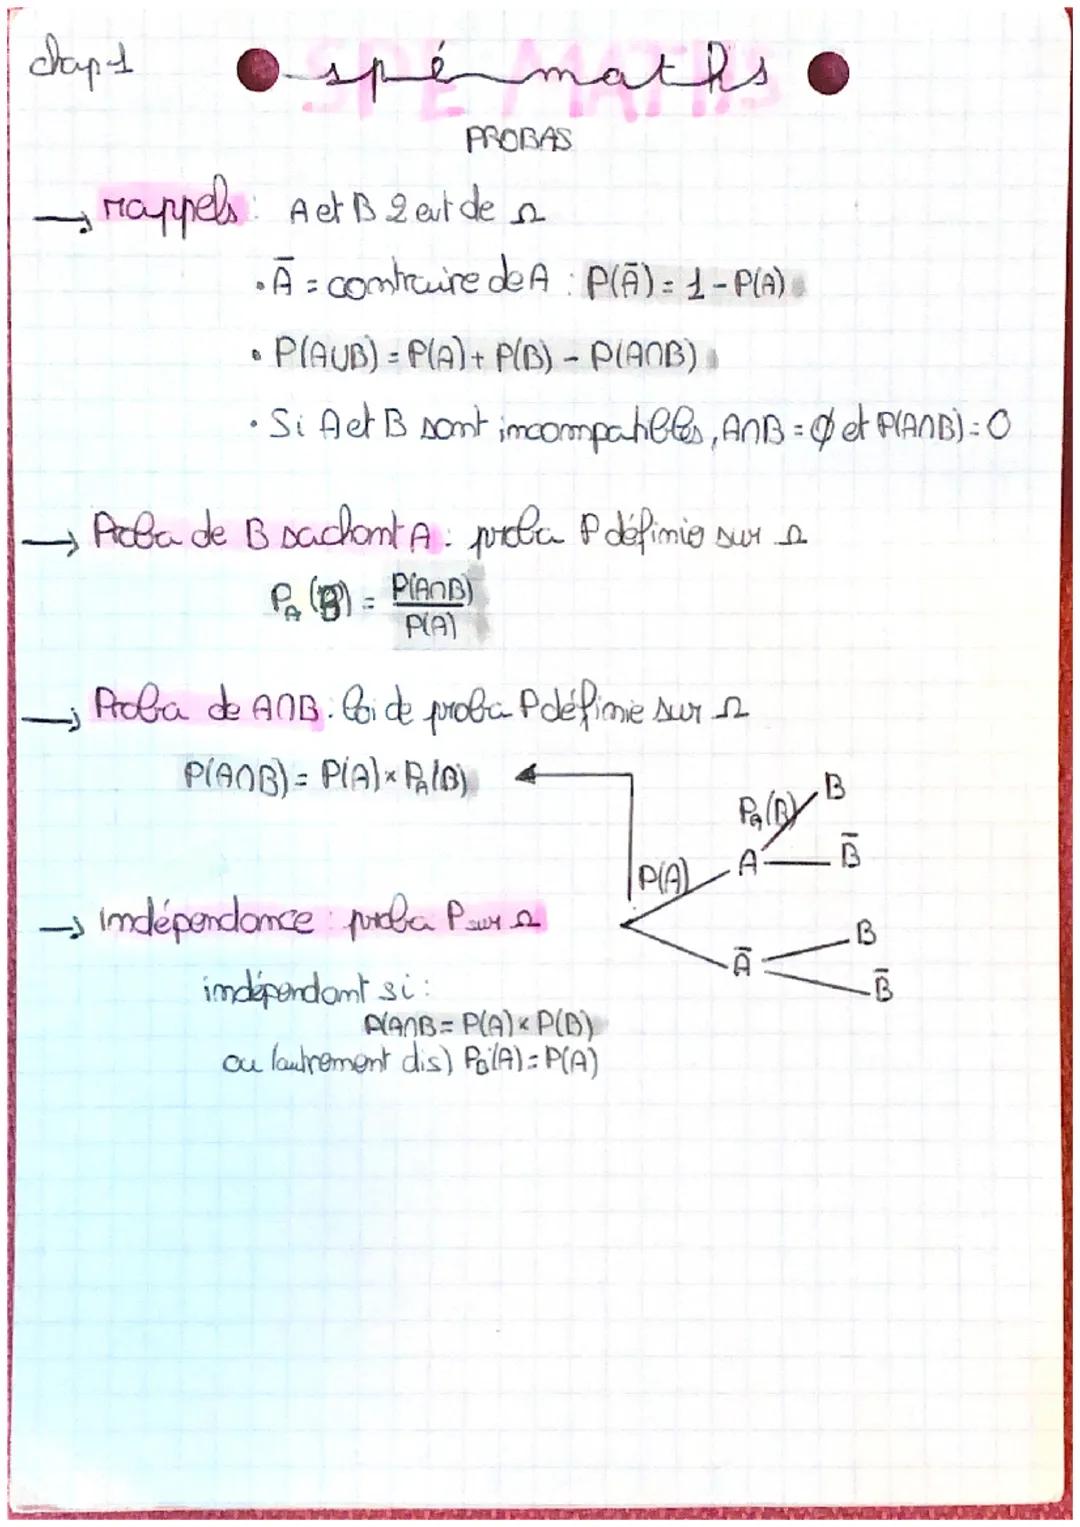 chap 1
spé maths
SPE MATHS
PROBAS
→ rappels : A et B 2 evt de Ω
• Ā = contraire de A : P(Ā) = 1 - P(A)
• P(A∪B) = P(A) + P(B) - P(A∩B)
• Si A et B sont incompatibles, A∩B = ∅ et P(A∩B) = 0
→ Proba de B sachant A : proba P définie sur Ω
P_A(B) = P(A∩B) / P(A)
→ Proba de A∩B : loi de proba P définie sur Ω
P(A∩B) = P(A) × P_A(B)
P_A(B) B
P(A) A B̄
→ indépendance : proba P sur Ω
Ā B
B̄
indépendant si :
P(A∩B = P(A) × P(B)
ou (autrement dis) P_B(A) = P(A)